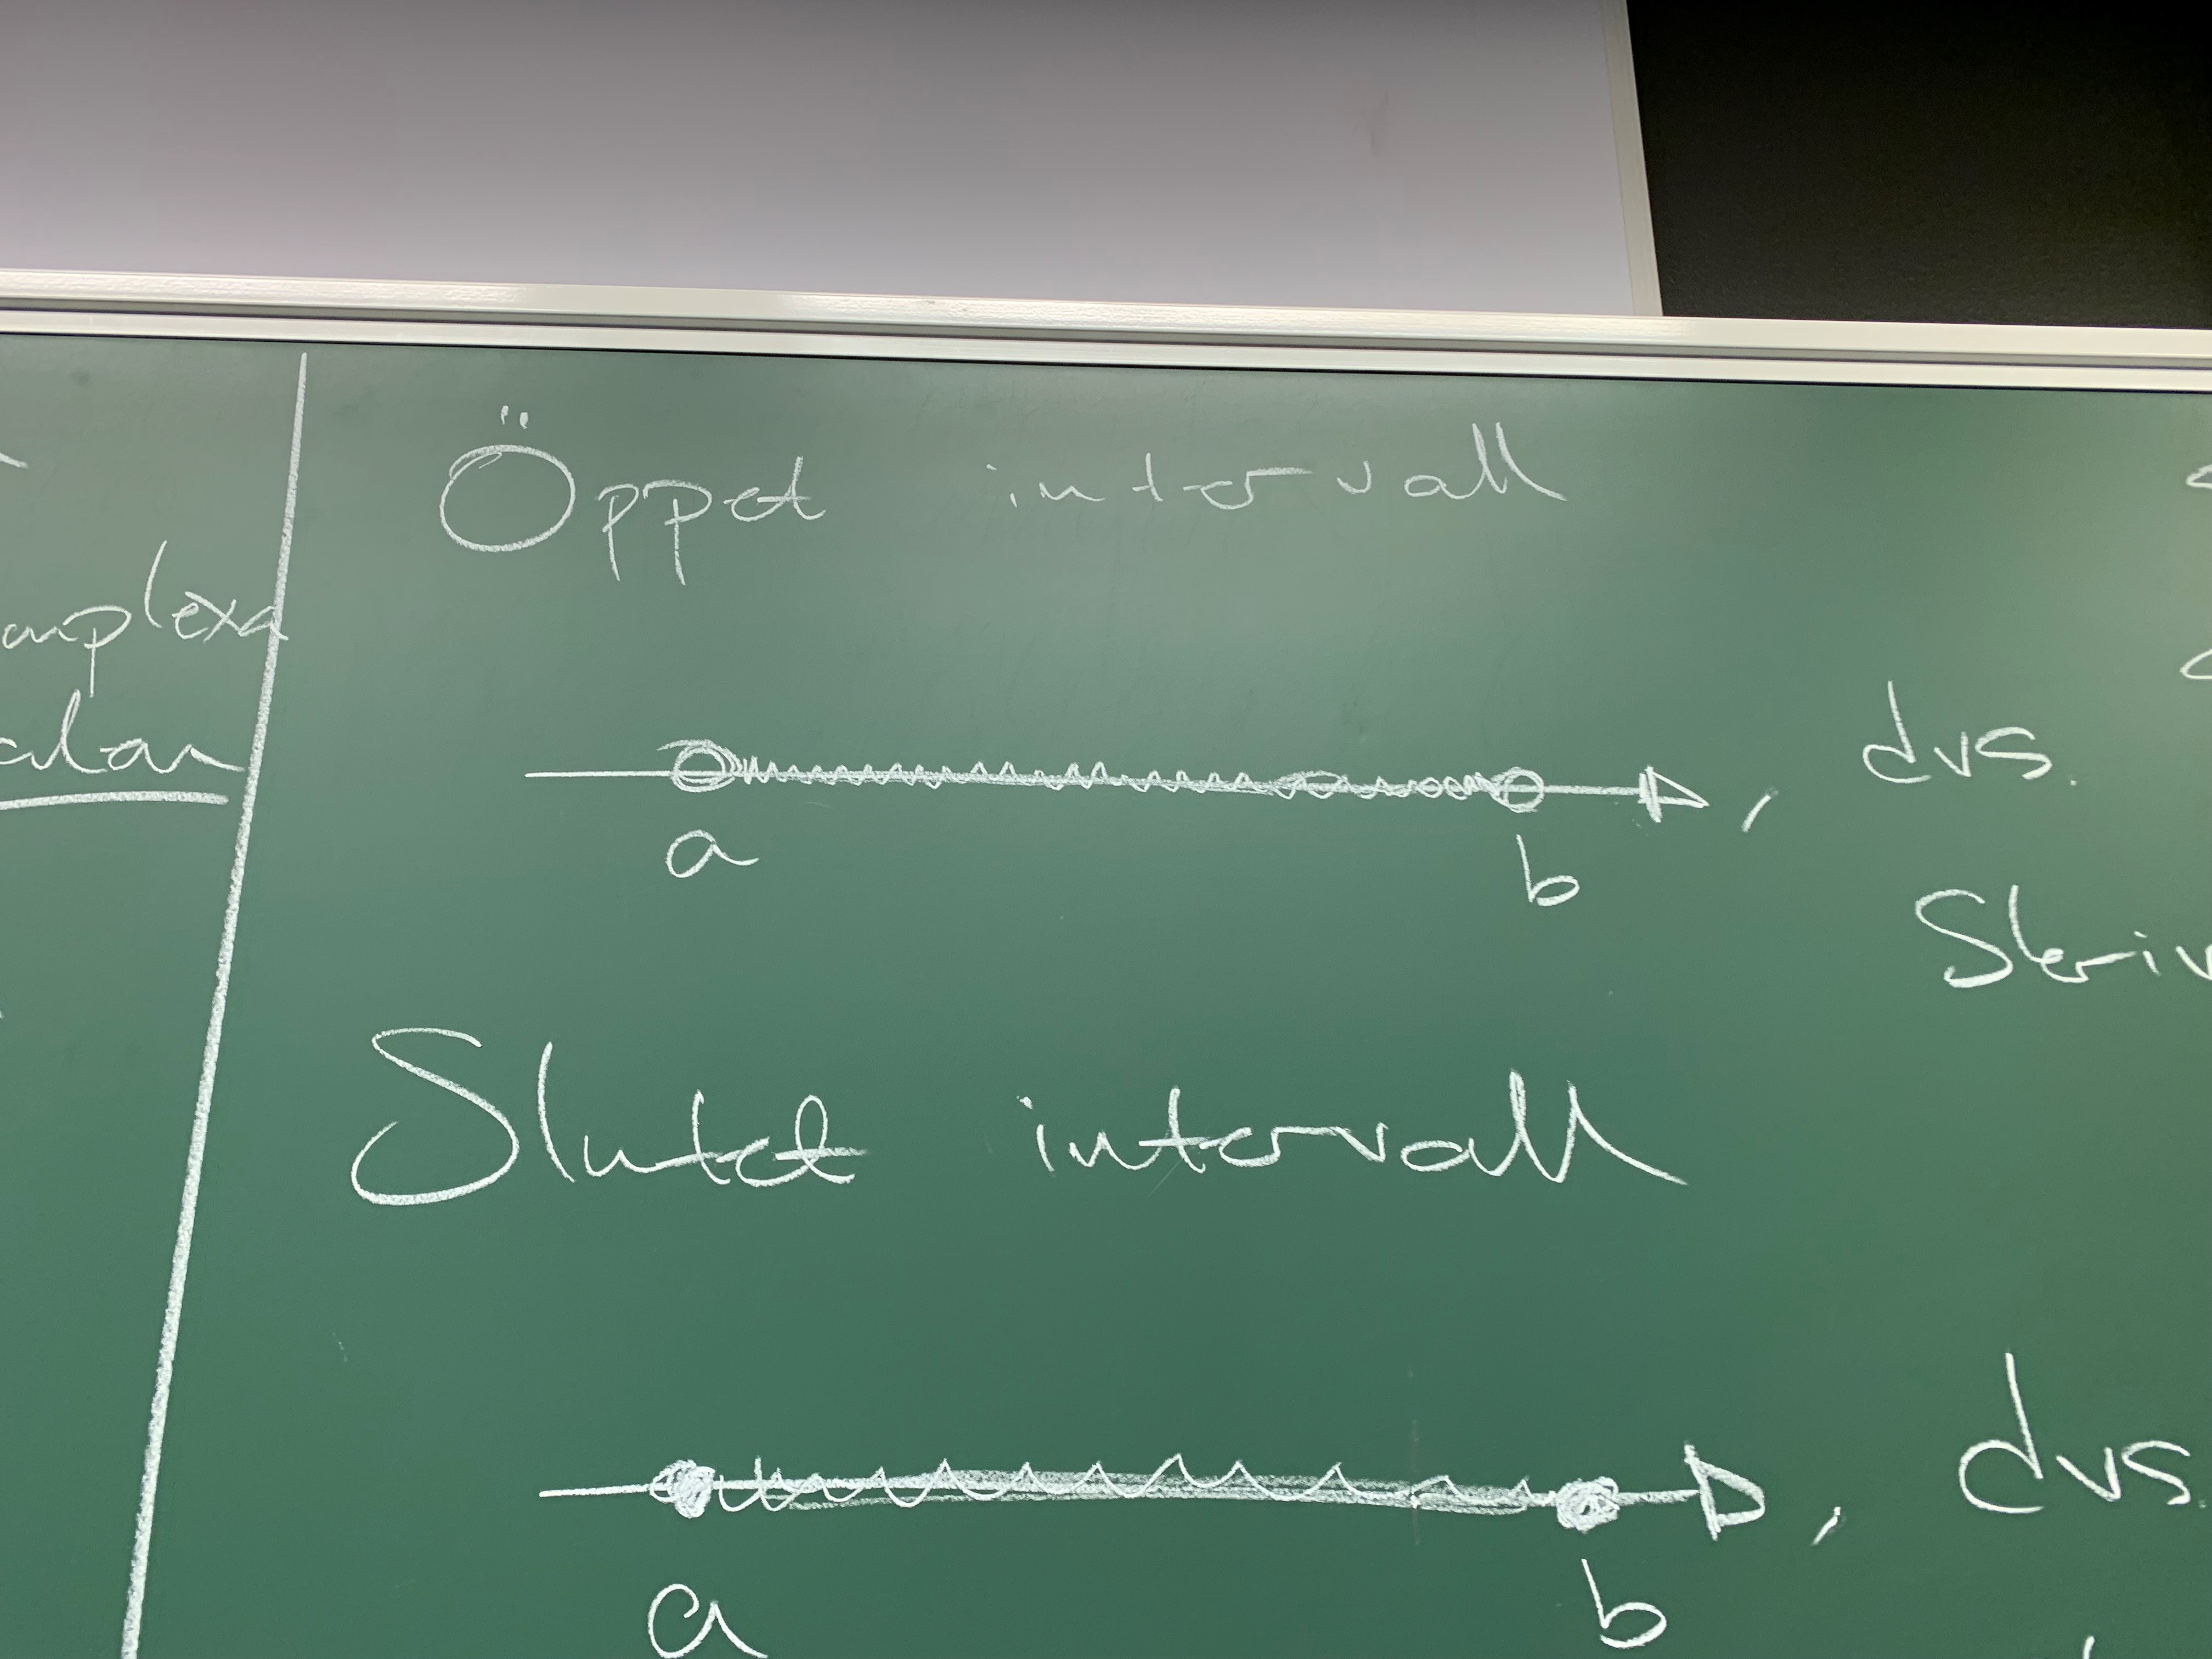 omplexa
alan
Öppet intervall
a b , dvs.
Skriv
Slutet intervall
a b , dvs.